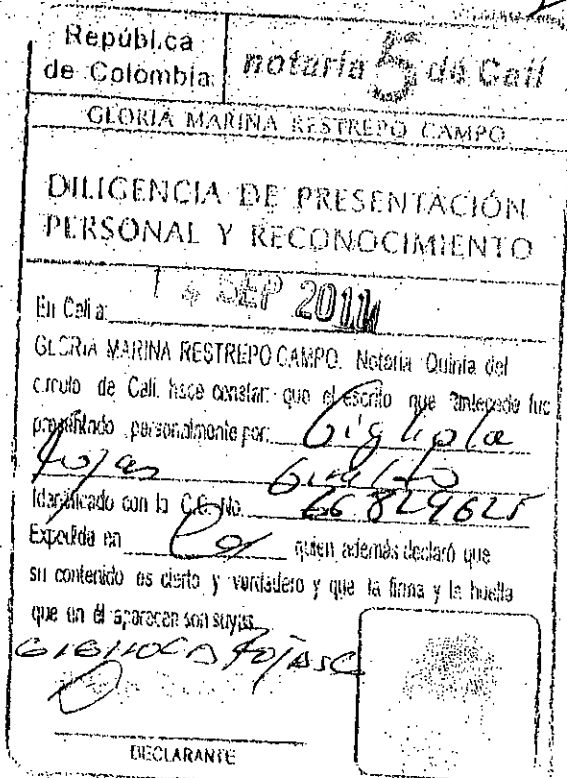 República
de Colombia
notaria 5 de Cali
GLORIA MARINA RESTREPO CAMPO
DILIGENCIA DE PRESENTACIÓN
PERSONAL Y RECONOCIMIENTO
En Cali a: 14 SEP 2011
GLORIA MARINA RESTREPO CAMPO. Notaria Quinta del
circulo de Cali. hace constar: que el escrito que antecede fue
presentado personalmente por: Gigliola
Rojas
Identificado con la C.C. No. 66829625
Expedida en quien además declaró que
su contenido es cierto y verdadero y que la firma y la huella
que en él aparecen son suyas.
DECLARANTE